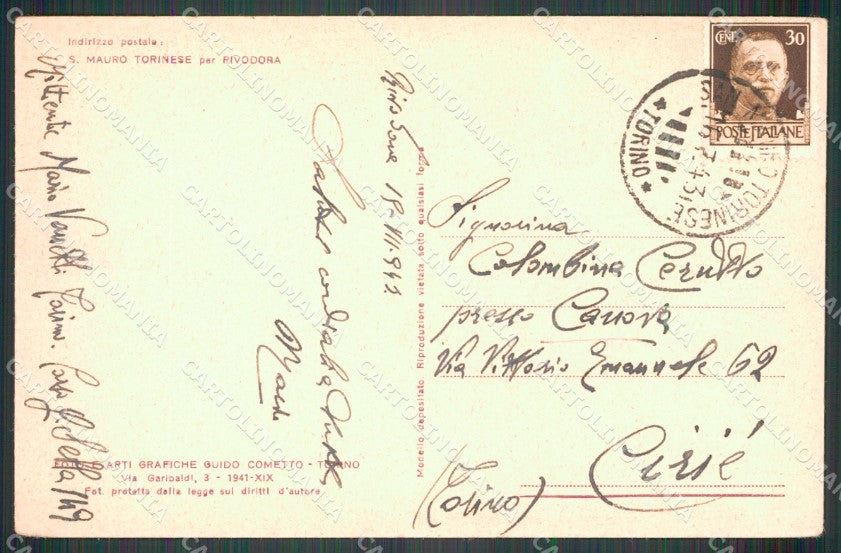 Indirizzo postale:
S. MAURO TORINESE per RIVODORA
Mittente Mario
Torino
Saluti cordiali a tutti
FOTO E ARTI GRAFICHE GUIDO COMETTO - TORINO
Via Garibaldi, 3 - 1941-XIX
Fot. protetta dalla legge sui diritti d'autore
Modello depositato. Riproduzione vietata sotto qualsiasi forma
CENT. 30
POSTE ITALIANE
SAN MAURO TORINESE
* TORINO *
Signorina
Colombina Cerutto
presso Canova
Via Vittorio Emanuele 62
Cirié
(Torino)
CARTOLINOMANIA